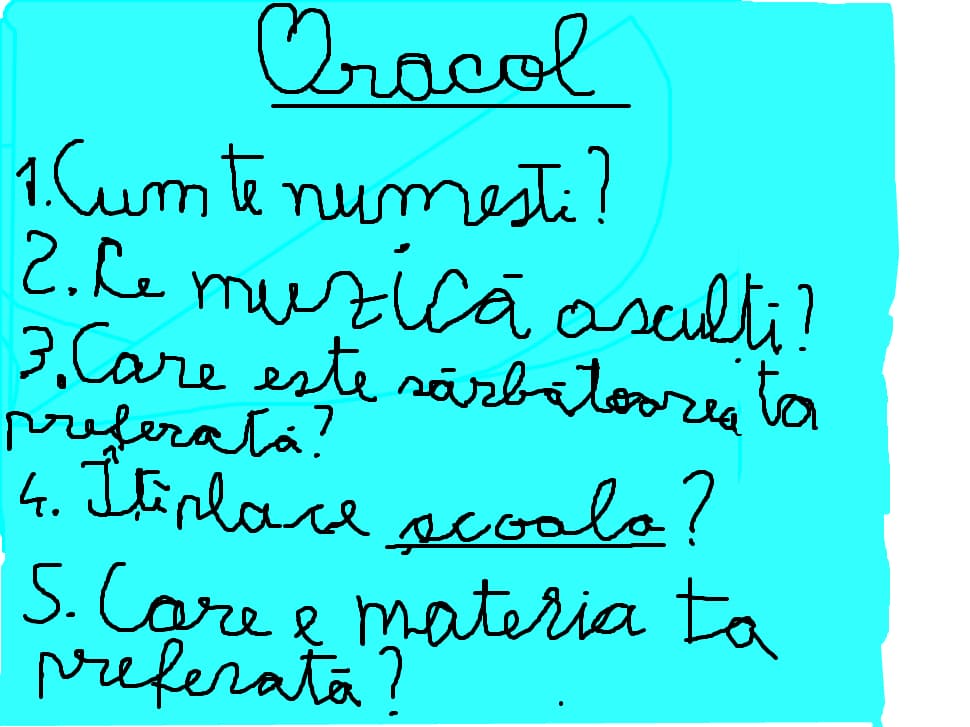 Oracol
1. Cum te numesti?
2. Ce muzică asculți?
3. Care este sărbătoarea ta
preferată?
4. Îți place școala?
5. Care e materia ta
preferată?